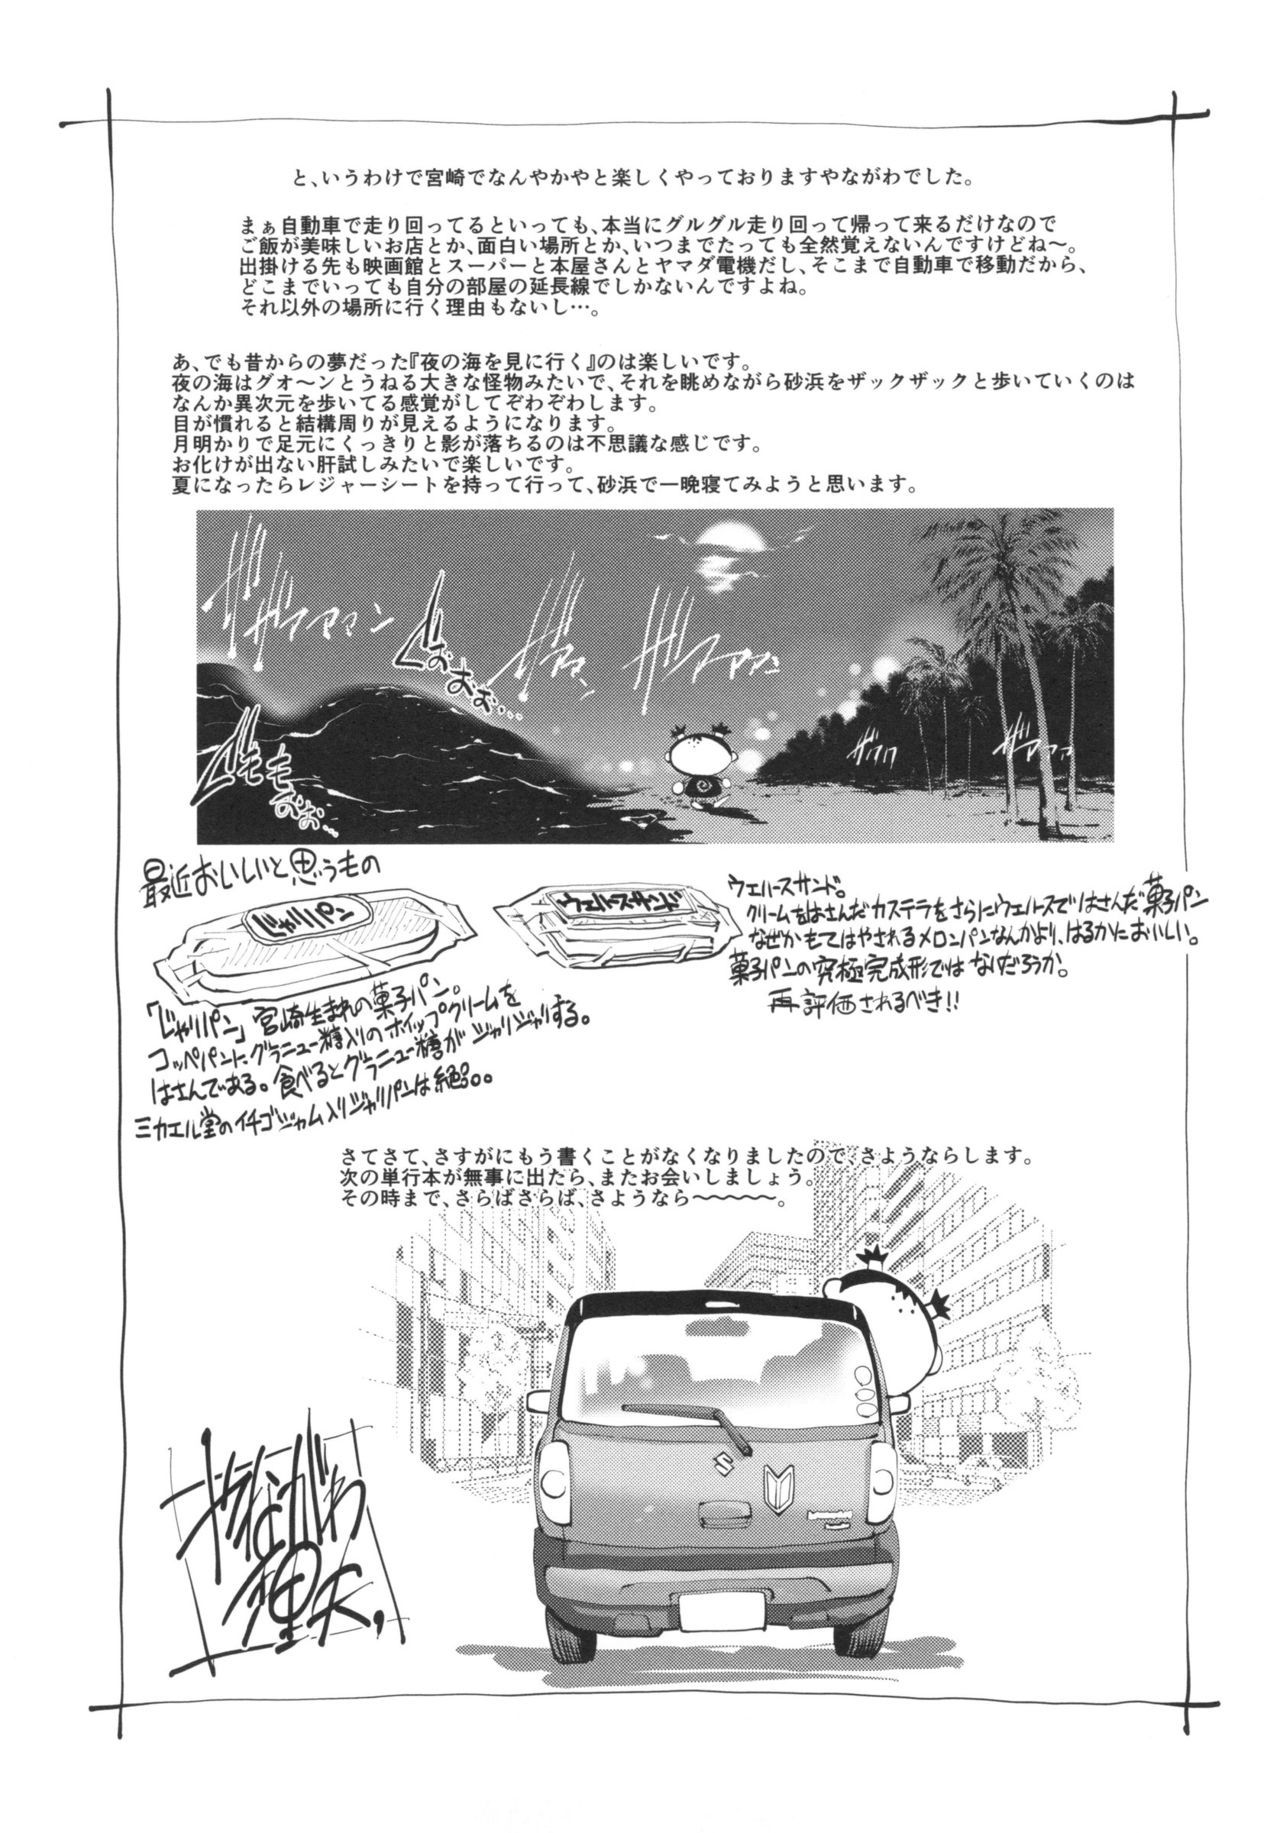 と、いうわけで宮崎でなんやかやと楽しくやっておりますやながわでした。
まぁ自動車で走り回ってるといっても、本当にグルグル走り回って帰って来るだけなので
ご飯が美味しいお店とか、面白い場所とか、いつまでたっても全然覚えないんですけどね～。
出掛ける先も映画館とスーパーと本屋さんとヤマダ電機だし、そこまで自動車で移動だから、
どこまでいっても自分の部屋の延長線でしかないんですよね。
それ以外の場所に行く理由もないし…。
あ、でも昔からの夢だった『夜の海を見に行く』のは楽しいです。
夜の海はグオ～ンとうねる大きな怪物みたいで、それを眺めながら砂浜をザックザックと歩いていくのは
なんか異次元を歩いてる感覚がしてぞわぞわします。
目が慣れると結構周りが見えるようになります。
月明かりで足元にくっきりと影が落ちるのは不思議な感じです。
お化けが出ない肝試しみたいで楽しいです。
夏になったらレジャーシートを持って行って、砂浜で一晩寝てみようと思います。
最近おいしいと思うもの
じゃりパン
ウエハースサンド
「じゃりパン」宮崎生まれの菓子パン。
コッペパンにグラニュー糖入りのホイップクリームを
はさんである。食べるとグラニュー糖がジャリジャリする。
ミカエル堂のイチゴジャム入りジャリパンは絶品。
ウエハースサンド。
クリームをはさんだカステラをさらにウエハースではさんだ菓子パン
なぜかもてはやされるメロンパンなんかより、はるかにおいしい。
菓子パンの究極完成形ではないだろうか。
再評価されるべき!!
さてさて、さすがにもう書くことがなくなりましたので、さようならします。
次の単行本が無事に出たら、またお会いしましょう。
その時まで、さらばさらば、さようなら～～～～。
やながわ
理央,